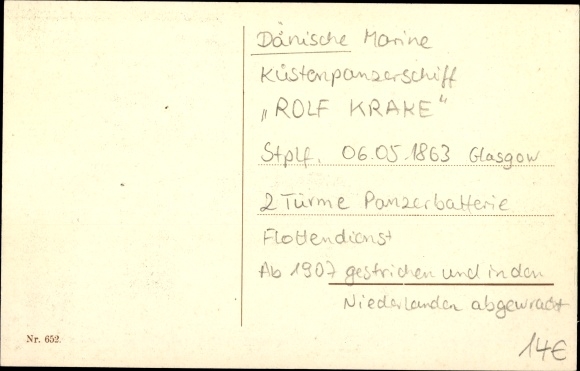 Dänische Marine
Küstenpanzerschiff
„ROLF KRAKE“
Stplf. 06.05.1863 Glasgow
2 Türme Panzerbatterie
Flottendienst
Ab 1907 gestrichen und in den
Niederlanden abgewrackt
Nr. 652.
14€